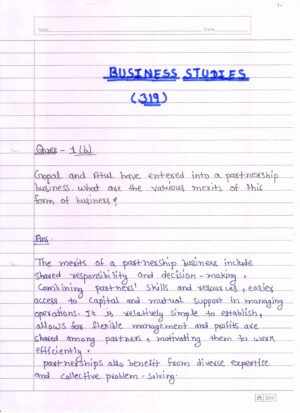 BUSINESS STUDIES
(319)
Ques - 1 (b)
Gopal and Atul have entered into a partnership
business. what are the various merits of this
form of business?
Ans.
The merits of a partnership business include
shared responsibility and decision-making.
Combining partners' skills and resources, easier
access to capital and mutual support in managing
operations. It is relatively simple to establish,
allows for flexible management and profits are
shared among partners, motivating them to work
efficiently.
partnerships also benefit from diverse expertise
and collective problem-solving.